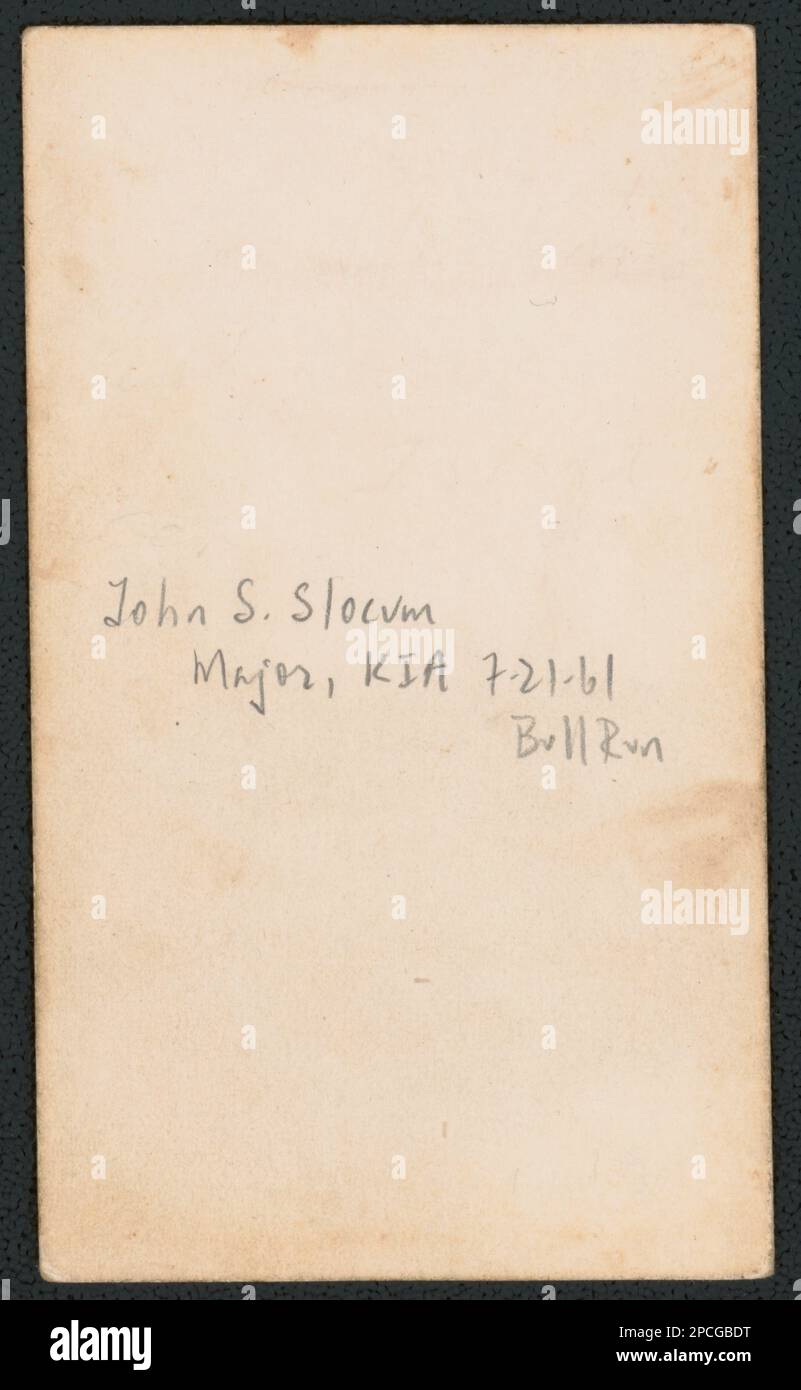 John S. Slocum
Major, KIA 7-21-61
Bull Run
alamy
alamy
alamy
Image ID: 2PCGBDT
www.alamy.com